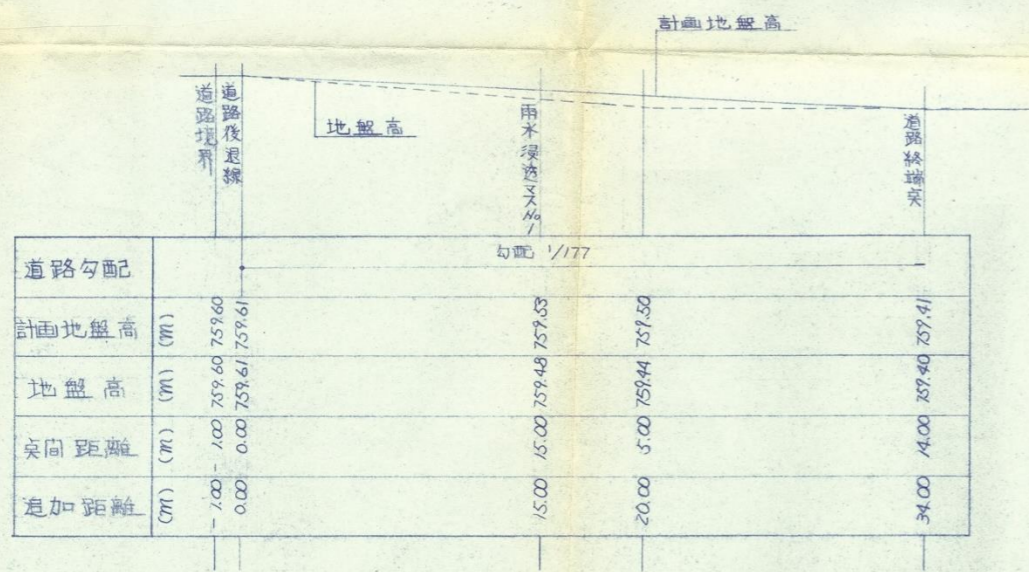 計画地盤高
地盤高
道路境界
道路後退線
雨水浸透マスNo1
道路終端点
道路勾配
勾配 1/177
計画地盤高 (m) 759.60 759.61 759.53 759.50 759.41
地盤高 (m) 759.60 759.61 759.48 759.44 759.40
点間距離 (m) - 1.00 0.00 15.00 5.00 14.00
追加距離 (m) - 1.00 0.00 15.00 20.00 34.00